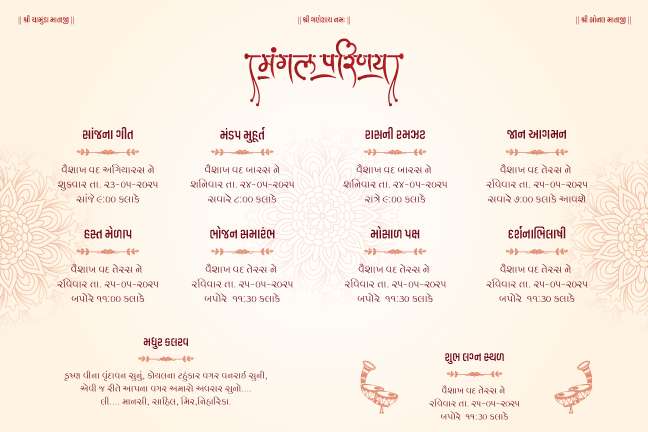 || શ્રી ચામુંડા માતાજી ||
|| શ્રી ગણેશાય નમઃ ||
|| શ્રી સોનલ માતાજી ||
મંગલ પરિણય
સાંજના ગીત
વૈશાખ વદ અગિયારસ ને
શુક્રવાર તા. ૨૩-૦૫-૨૦૨૫
સાંજે ૯:૦૦ કલાકે
મંડપ મુહૂર્ત
વૈશાખ વદ બારસ ને
શનિવાર તા. ૨૪-૦૫-૨૦૨૫
સવારે ૮:૦૦ કલાકે
રાસની રમઝટ
વૈશાખ વદ બારસ ને
શનિવાર તા. ૨૪-૦૫-૨૦૨૫
રાત્રે ૯:૦૦ કલાકે
જાન આગમન
વૈશાખ વદ તેરસ ને
રવિવાર તા. ૨૫-૦૫-૨૦૨૫
સવારે ૭:૦૦ કલાકે આવશે
હસ્ત મેળાપ
વૈશાખ વદ તેરસ ને
રવિવાર તા. ૨૫-૦૫-૨૦૨૫
બપોરે ૧૧:૦૦ કલાકે
ભોજન સમારંભ
વૈશાખ વદ તેરસ ને
રવિવાર તા. ૨૫-૦૫-૨૦૨૫
બપોરે ૧૧:૩૦ કલાકે
મોસાળ પક્ષ
વૈશાખ વદ તેરસ ને
રવિવાર તા. ૨૫-૦૫-૨૦૨૫
બપોરે ૧૧:૩૦ કલાકે
દર્શનાભિલાષી
વૈશાખ વદ તેરસ ને
રવિવાર તા. ૨૫-૦૫-૨૦૨૫
બપોરે ૧૧:૩૦ કલાકે
મધુર કલરવ
કૃષ્ણ વીના વૃંદાવન સુનું, કોયલના ટહુંકાર વગર વનરાઈ સુની,
એવી જ રીતે આપના વગર અમારો અવસર સુનો....
લી.... માનસી, સાહિલ, મિર,નિહારિકા.
શુભ લગ્ન સ્થળ
વૈશાખ વદ તેરસ ને
રવિવાર તા. ૨૫-૦૫-૨૦૨૫
બપોરે ૧૧:૩૦ કલાકે